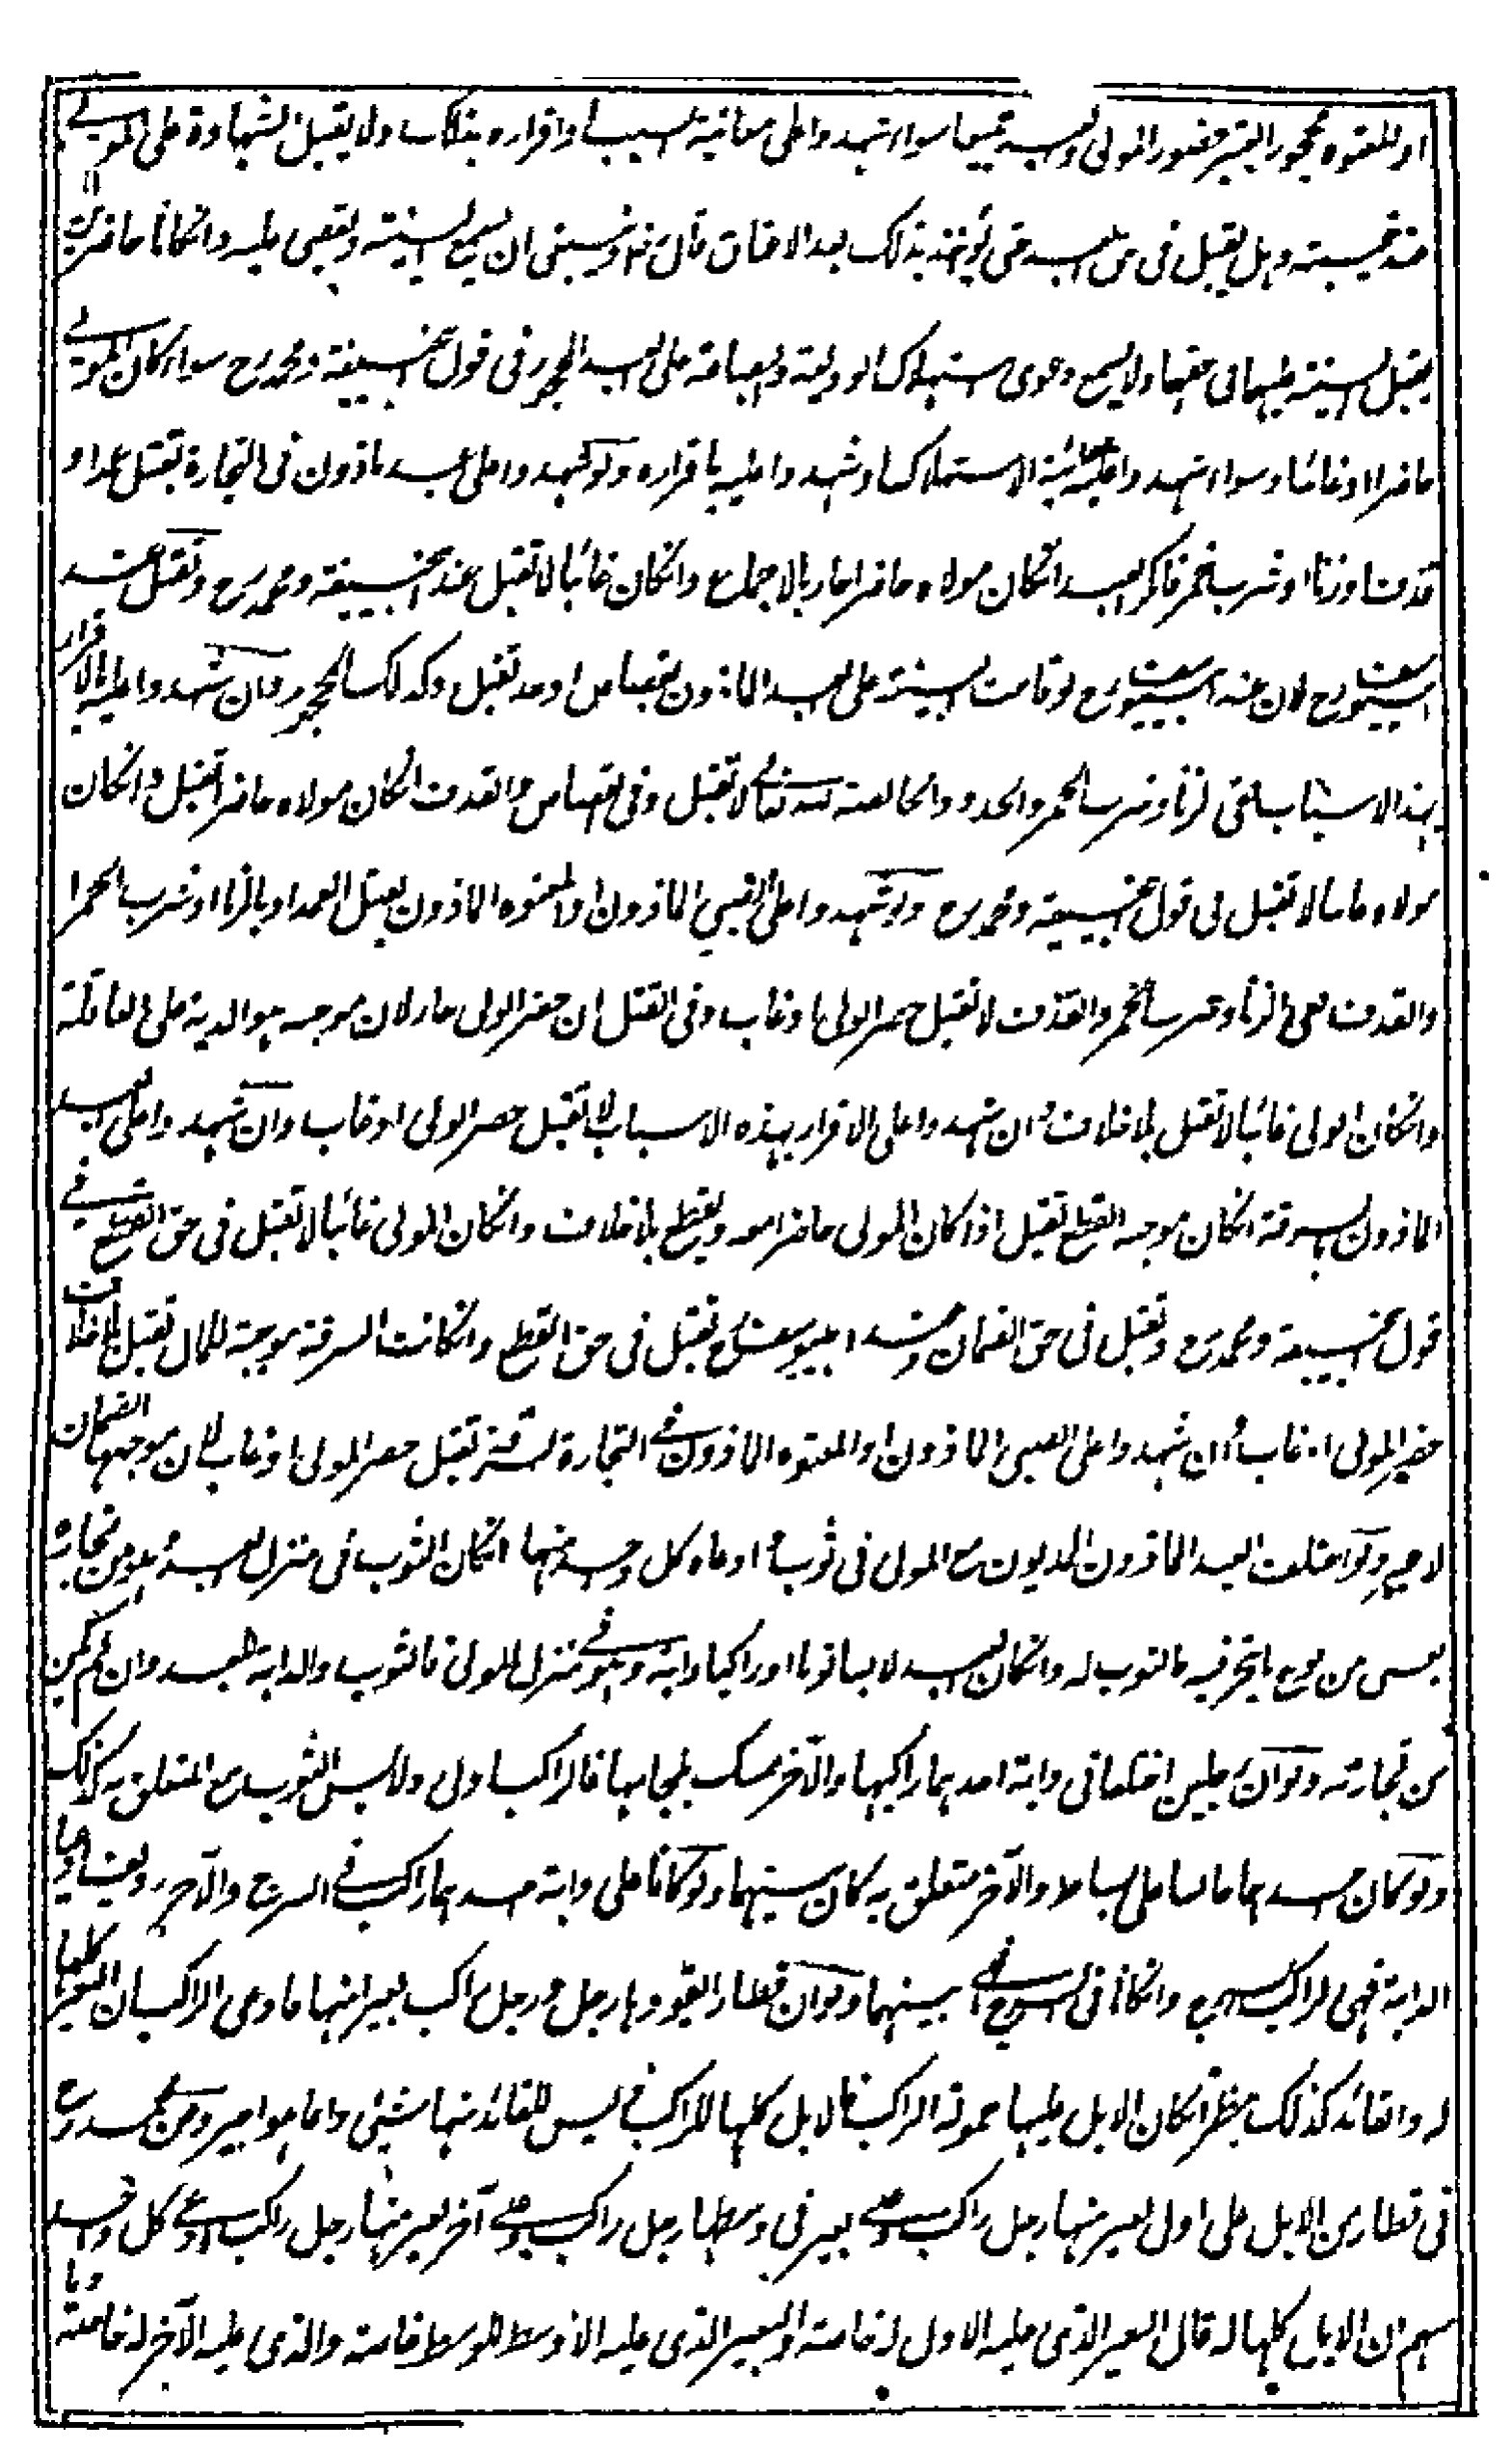 او المعتوه محجورا يعتبر حضور المولى والعبد جميعا سواء شهدوا على معاينة السبب او اقراره بذلك ولا يقبل الشهادة على المولى
عند غيبته وهل يقبل فى حق العبد حتى يؤاخذ بذلك بعد الاعتاق قال وينبغى ان يسمع البينة ويقضى عليه وانكانا حاضرين
يقبل البينة عليهما فى حقهما ولا يسمع دعوى استهلاك الوديعة والبضاعة على العبد المحجور فى قول ابيحنيفة ومحمد رح سواء كان المولى
حاضرا او غائبا وسواء شهدوا عليه بمعاينة الاستهلاك او شهدوا عليه باقراره ولو شهدوا على عبد ماذون فى التجارة بقتل عمد او
قذف او زنا او شرب خمر فانكر العبد انكان مولاه حاضرا جاز بالاجماع وانكان غائبا لا تقبل عند ابيحنيفة ومحمد رح وتقبل عند
ابييوسف رح لان عند ابييوسف رح لو قامت البينة على العبد الماذون بقصاص او حد تقبل وكذلك المحجور فان شهدوا عليه بالاقرار
بهذه الاسباب ففى الزنا وشرب الخمر والحدود الخالصة لله تعالى لا تقبل وفى القصاص والقذف انكان مولاه حاضرا تقبل وانكان
مولاه غائبا لا تقبل فى قول ابيحنيفة ومحمد رح ولو شهدوا على الصبى الماذون او المعتوه الماذون بقتل العمد او بالزنا او شرب الخمر
والقذف ففى الزنا وشرب الخمر والقذف لا تقبل حضر الولى او غاب وفى القتل ان حضر الولى جاز لان موجبه هو الدية على العاقلة
وانكان الولى غائبا لا تقبل بلا خلاف وان شهدوا على الاقرار بهذه الاسباب لا تقبل حضر الولى او غاب وان شهدوا على العبد
الماذون بسرقة انكان موجبه القطع تقبل اذا كان المولى حاضرا معه ويقطع بلا خلاف وانكان المولى غائبا لا تقبل فى حق القطع فى
قول ابيحنيفة ومحمد رح وتقبل فى حق الضمان وعند ابييوسف رح تقبل فى حق القطع وانكانت السرقة موجبة للمال تقبل بلا خلاف
حضر المولى او غاب وان شهدوا على الصبى الماذون او المعتوه الماذون فى التجارة بسرقة تقبل حضر المولى او غاب لان موجبها الضمان
لا غير ولو اختلف العبد الماذون المديون مع المولى فى ثوب ادعاه كل واحد منهما انكان الثوب فى منزل العبد وهو من تجارته
من نوع ما يتجر فيه فالثوب له وانكان العبد لابسا ثوبا او راكبا دابة وهو فى منزل المولى فالثوب والدابة للعبد وان لم يكن
من تجارته ولو ان رجلين اختلفا فى دابة احدهما راكبها والآخر ممسك بلجامها فالراكب اولى ولابس الثوب مع المتعلق به كذلك
ولو كان احدهما جالسا على بساط والآخر متعلق به كان بينهما ولو كانا على دابة احدهما راكب فى السرج والآخر رديف وادعيا
الدابة فهى لراكب السرج وانكانا فى السرج فهى بينهما ولو ان قطارا يقودها رجل ورجل راكب بعيرا منها فادعى الراكب ان البعير كلها
له والقائد كذلك ينظر انكان الابل عليها حمولة الراكب فالابل كلها للراكب وليس للقائد منها شيئ وانما هو اجير وعن محمد رح
فى قطار من الابل على اول بعير منها رجل راكب وعلى بعير فى وسطها رجل راكب وعلى آخر بعير منها رجل راكب ادعى كل واحد
منهم ان الابل كلها له قال البعير الذى عليه الاول له خاصة والبعير الذى عليه الاوسط للاوسط خاصة والذى عليه الآخر له خاصة وما